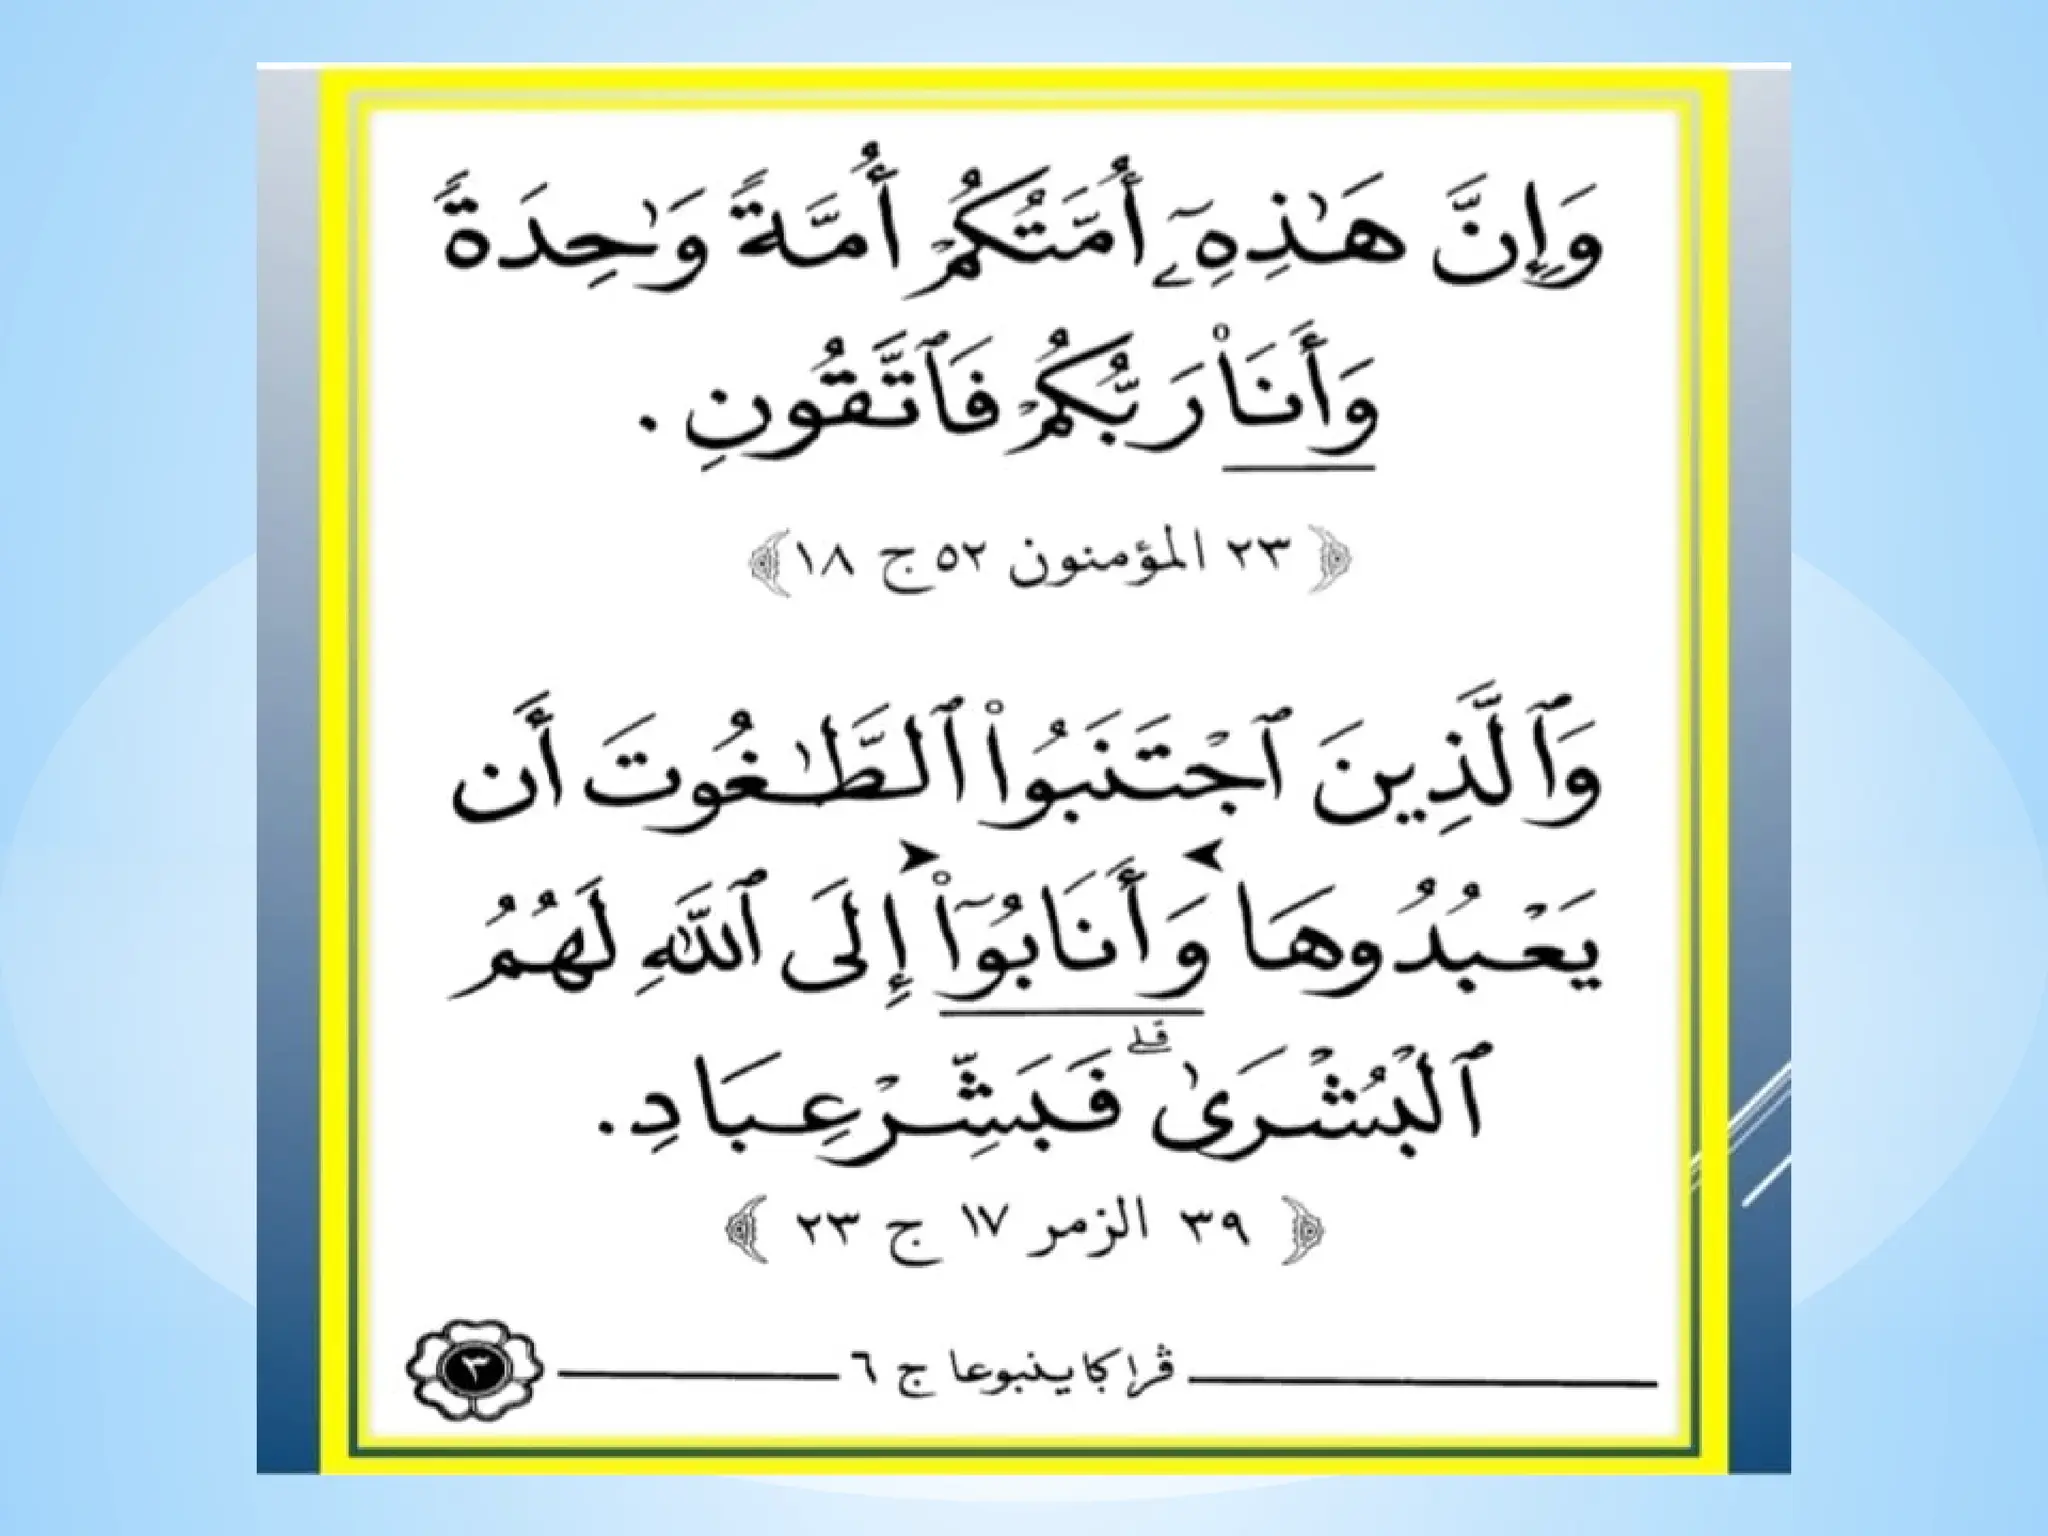 وَإِنَّ هَـٰذِهِۦٓ أُمَّتُكُمْ أُمَّةً وَٰحِدَةً
وَأَنَا۠ رَبُّكُمْ فَٱتَّقُونِ .
﴿ ٢٣ المؤمنون ٥٢ ج ١٨ ﴾
وَٱلَّذِينَ ٱجْتَنَبُوا۟ ٱلطَّـٰغُوتَ أَن
يَعْبُدُوهَا وَأَنَابُوٓا۟ إِلَى ٱللَّهِ لَهُمُ
ٱلْبُشْرَىٰ ۚ فَبَشِّرْ عِبَادِ .
﴿ ٣٩ الزمر ١٧ ج ٢٣ ﴾
ج ٦
٣